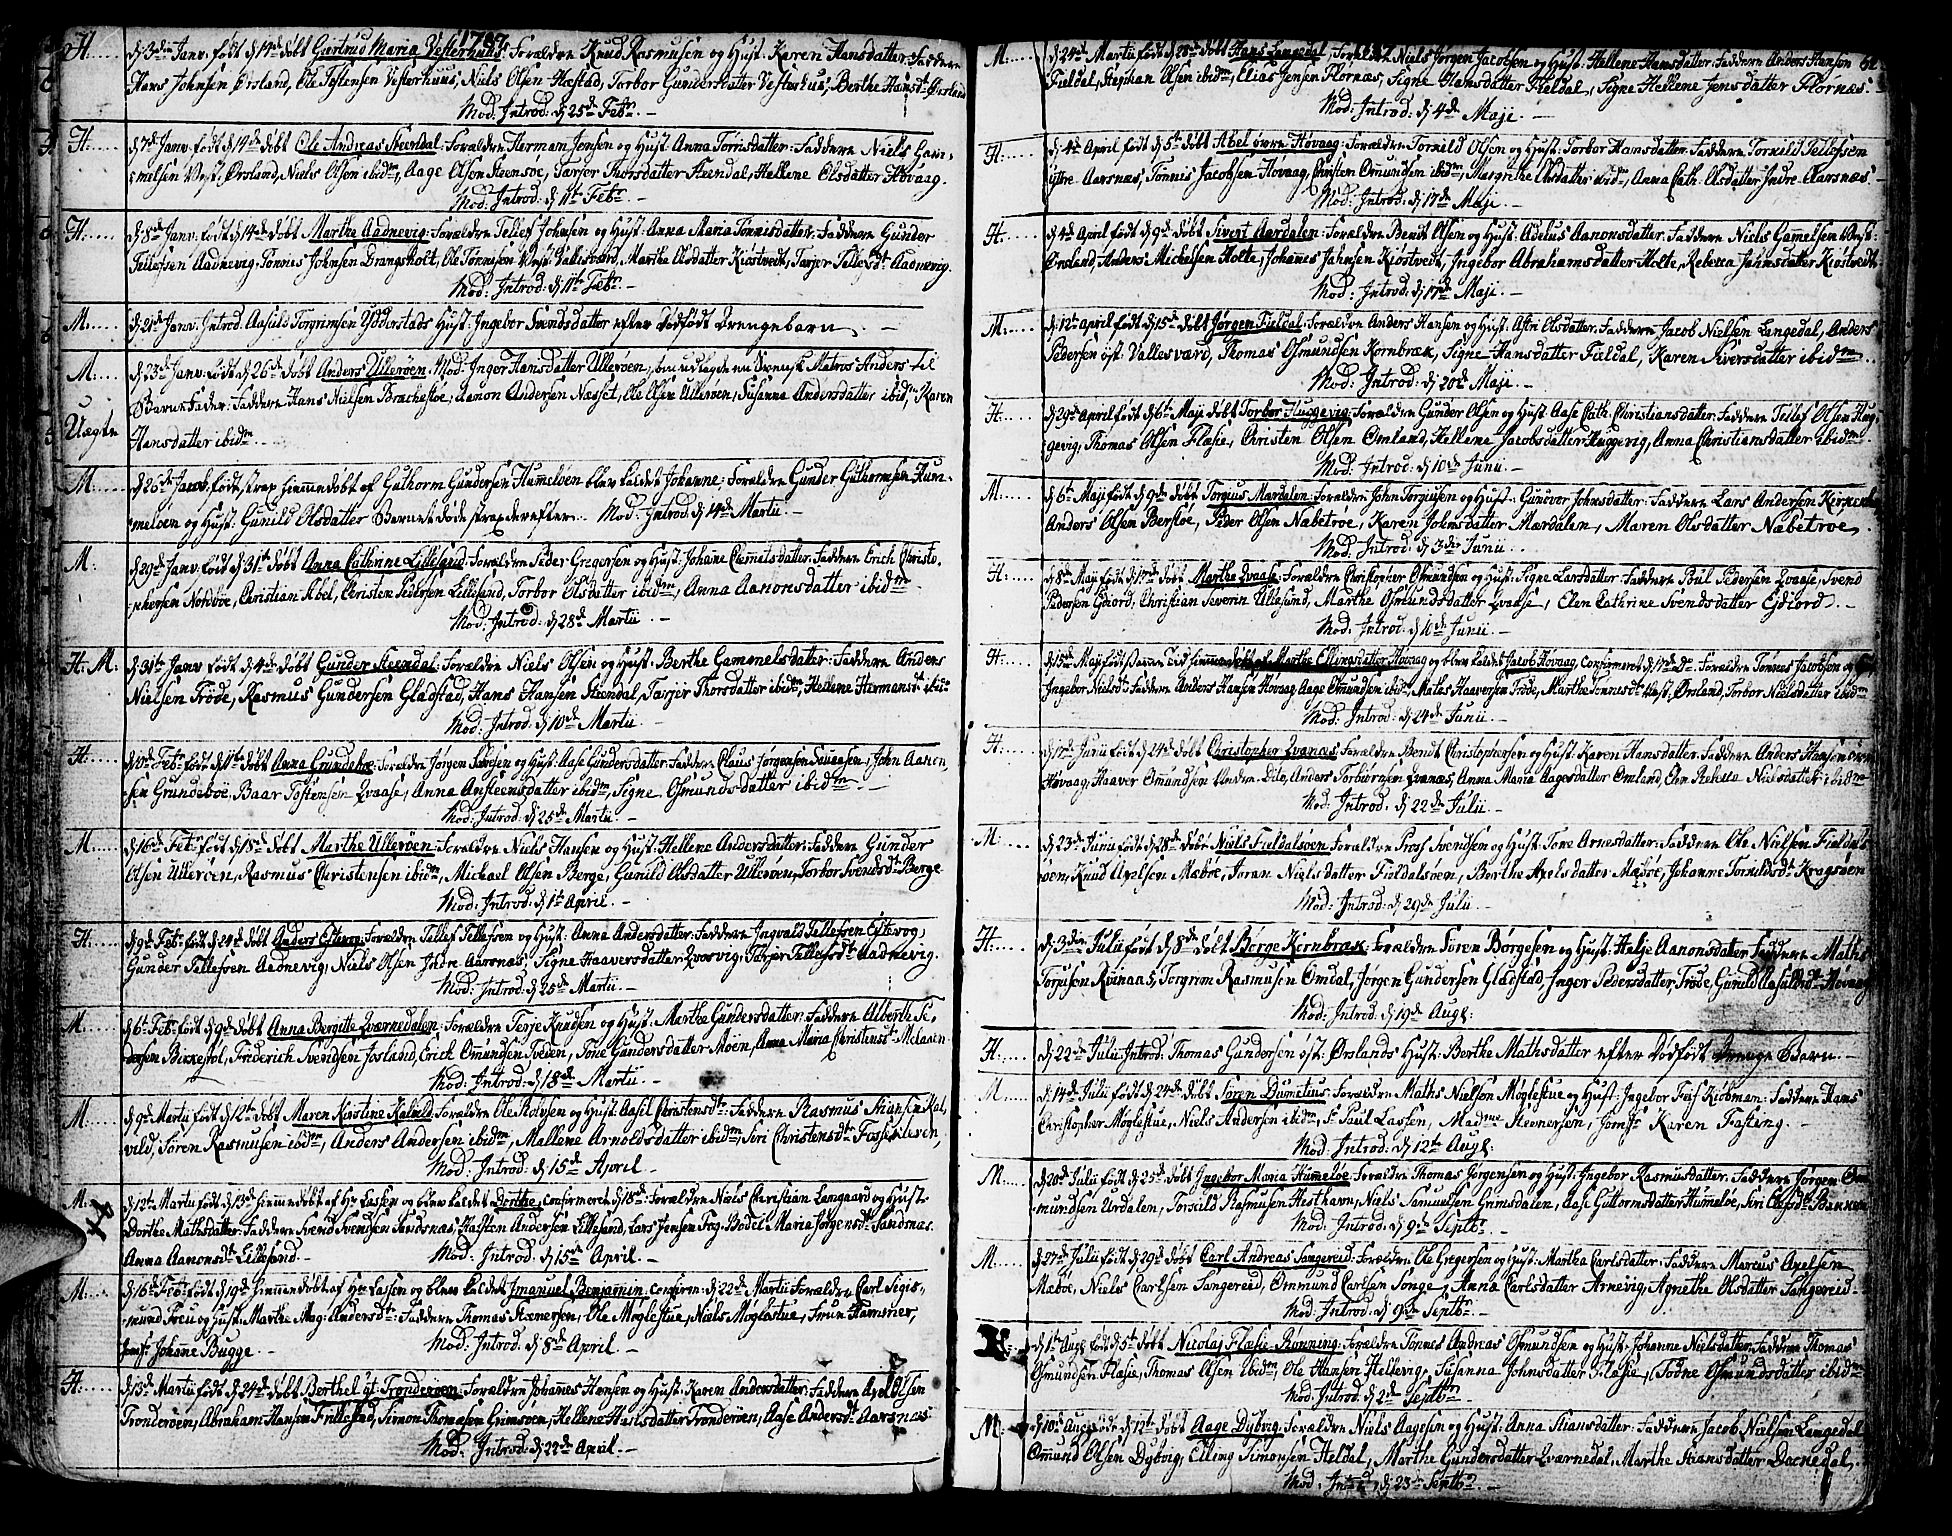 1787
H. d. 3die Janv. født d. 14de døbt Giertrud Maria Vesterhuus: Forældre Knud Rasmusen og Hust: Karen Hansdatter: Faddere
Hans Johnsen Ørsland, Ole Tostensen Vesterhuus, Niels Olsen Hæstad, Torbor Gundersdatter Vesterhuus, Berthe Hansdt. Ørsland
Mod: Introd: d. 25de Febr. –
H. d. 7de Janv. født d. 14de døbt Ole Andreas Steendal: Forældre Herman Jensen og Hust: Anna Tørrisdatter: Faddere Niels Gam-
melsen Vest: Ørsland, Niels Olsen ibidm, Aage Olsen Steensøe, Tarjer Thorsdatter Steendal, Hellene Olsdatter Høvaag.
Mod: Introd: d. 11te Febr. –
H. d. 8de Janv. født d. 14de døbt Marthe Aadnevig: Forældre Tellef Johnsen og Hust: Anna Maria Tønnisdatter: Faddere Gunder
Tellefsen Aadnevig, Tønnes Johnsen Drangsholt, Ole Tønnisen Vest: Vallesverd, Marthe Olsdatter Kiøstvedt, Tarjer Tellefsdt. Aadnevig.
Mod: Introd: d. 11te Febr. –
M. d. 21de Janv. Introd. Aasuls Torgrimsen Ydderstads Hust: Ingebor Svendsdatter efter Dødfødt Drengebarn –
M. d. 23de Janv. født d. 26de døbt Anders Ulleröen. Mod: Inger Hansdatter Ulleröen, som udlagde en Svensk Matros Anders til
Uægte Barne Fader: Faddere Hans Nielsen Brækkestøe, Aanon Andersen Næsset, Ole Olsen Ulleröen, Susanna Andersdatter ibid, Karen
Hansdatter ibidm.
M. d. 26de Janv. født strax hiemmedøbt af Guthorm Gundersen Hummelöen blev kaldet Johanne: Forældre Gunder Guthormsen Hum-
melöen og Hust: Gunild Olsdatter Barnet døde strax derefter. Mod: Introd: d. 14de Martii. –
M. d. 29de Janv. født d. 31te døbt Anna Cathrine Lillesand: Forældre Peder Gregersen og Hust: Johane Clemmetsdatter: Faddere Erich Christo-
phersen Nordbøe, Christian Abel, Christen Pedersen Lillesand, Torbor Olsdatter ibidm, Anna Aanonsdatter ibidm.
Mod: Introd: d. 28de Martii. –
H. M. d. 31te Janv. født d. 4de døbt Gunder Steendal: Forældre Niels Olsen og Hust: Berthe Gammelsdatter: Faddere Anders
Nielsen Trøde, Rasmus Gundersen Gladstad, Hans Hansen Steendal, Tarjer Thorsdatter ibidm, Hellene Hermansdt. ibidm
Mod: Introd: d. 10de Martii. –
H. d. 10de Febr. født d. 11te døbt Anna Grundeboe: Forældre Jørgen Olsen og Hust: Aase Gundersdatter: Faddere Claus Jørgensen, John Aanon-
sen Grundeboe, Baar Tostensen Qvaase, Anna Ansteensdatter ibidm, Signe Osmundsdatter ibidm. –
Mod: Introd: d. 25de Martii –
M. d. 16de Febr. født d. 18de døbt Marthe Ulleröen: Forældre Niels Hansen og Hust: Hellene Andersdatter: Faddere Gunder
Olsen Ulleröen, Rasmus Christensen ibidm, Michael Olsen Berge, Gunild Olsdatter Ulleröen, Torbor Svendsdt. Berge
Mod: Introd: d. 1te April. –
H. d. 9de Febr. født d. 24de døbt Anders Eftevog: Forældre Tellef Tellefsen og Hust: Anna Andersdatter: Faddere Ingvald Tellefsen Eftevog,
Gunder Tellefsen Aadnevig, Niels Olsen Indre Aarsnæs, Signe Haaversdatter Qvosvig, Tarjer Tellefsdt. Aadnevig.
Mod: Introd: d. 25de Martii. –
M. d. 6te Febr. født d. 9de døbt Anna Bergitte Qværnedalen: Forældre Terje Knudsen og Hust: Marthe Gundersdatter: Faddere Alberth Pe-
dersen Birkesol, Friderich Svendsen Josland, Erich Omundsen Tveden, Tone Gundersdatter Moen, Anna Maria Christensdt. Meland
Mod: Introd: d. 18de Martii –
M. d. 9de Martii født d. 12te døbt Maren Kirstine Kalvild: Forældre Ole Rolvsen og Hust: Aasil Christensdt: Faddere Rasmus Stiansen Kal-
vild, Søren Rasmusen ibidm, Anders Andersen ibidm, Mallene Arnoldsdatter ibidm, Siri Christensdt. Fossekleven,
Mod: Introd: d. 15de April –
M. d. 12te Martii født d. 13de hiemmedøbt af Hr. Lassen og blev kaldet Dorthe, confirmeret d. 18de: Forældre Niels Christian Langaard og Hust:
Dorthe Mathsdatter: Faddere Svend Svendsen Sandsnæs, Halsten Andersen Lillesand, Lars Jensen Frg. Bodel Maria Jørgensdt. Sandsnæs.
Anna Aanonsdt. Lillesand. – Mod: Introd: d. 15de April –
M. d. 16de Febr. født d. 19de hiemmedøbt af Hr. Lassen og blev kaldet Imanuel Benjamin, confirm: d. 22de Martii Forældre Carl Sigis-
mund Foeu og Hust: Marthe Mag: Andersdt: Faddere Thomas Stænersen, Ole Møglestue, Niels Møglestue, Fruen Hammer,
Jomfr: Johane Bugge. Mod: Introd: d. 8de April. –
H. d. 13de Martii født d. 24de døbt Berthel yt: Trønderöen: Forældre Johanes Hansen og Hust: Karen Andersdatter: Faddere Axel Olsen
Trønderöen, Abraham Hansen Frillestad, Simon Thomasen Grimsöen, Hellene Hansdatter Trønderöen, Aase Andersdt. Aarsnæs
Mod: Introd: d. 22de April. –
1787
M. d. 24de Martii født d. 28de døbt Hans Langedal, Forældre Niels Jørgen Jacobsen og Hust: Hellene Hansdatter: Faddere Anders Hansen
Fieldal, Stephan Olsen ibidm, Elias Jensen Flornæs, Signe Hansdatter Fieldal, Signe Hellene Jensdatter Flornæs.
Mod: Introd: d. 4de Maji. –
H. d. 4de April født d. 5te døbt Abel øvre Høvaag: Forældre Torkild Olsen og Hust: Torbor Hansdatter: Faddere Torkild Tellefsen
Yttre Aarsnæs, Tønnis Jacobsen Høvaag, Christen Omundsen ibidm, Margrethe Olsdatter ibidm, Anna Cath. Olsdatter Indre Aarsnæs –
Mod: Introd: d. 17de Maji –
H. d. 4de April født d. 9de døbt Sivert Aardalen: Forældre Bendt Olsen og Hust: Adelus Aanonsdatter: Faddere Niels Gammelsen Vest:
Ørsland, Anders Michelsen Holte, Johanes Jahnsen Kiøstvedt, Ingebor Abrahamsdatter Holte, Rebecca Jahnsdatter Kiøstvedt
Mod: Introd: d. 17de Maji –
M. d. 12te April født d. 15de døbt Jørgen Fieldal: Forældre Anders Hansen og Hust: Astri Olsdatter: Faddere Jacob Nielsen Langedal, Anders
Pedersen øst: Vallesværd, Thomas Osmundsen Kornbræk, Signe Hansdatter Fieldal, Karen Siversdatter ibidm.
Mod: Introd: d. 20de Maji. –
H. d. 29de April født d. 6te Maji døbt Torbor Huggevig: Forældre Gunder Olsen og Hust: Aase Cath: Christiansdatter: Faddere Tellef Olsen Hug-
gevig, Thomas Olsen Flæsie, Christen Olsen Omland, Hellene Jacobsdatter Huggevig, Anna Christiansdatter ibidm
Mod: Introd: d. 10de Junii –
M. d. 6te Maji født d. 9de døbt Torgius Mardalen: Forældre John Torgiusen og Hust: Gunvor Johnsdatter: Faddere Lars Andersen
Anders Olsen Berstøe, Peder Olsen Næbetröe, Karen Johnsdatter Mærdalen, Maren Olsdatter Næbetröe.
Mod: Introd: d. 3die Junii.
H. d. 8de Maji født d. 17de døbt Marthe Qvaase: Forældre Christopher Osmundsen og Hust: Signe Larsdatter: Faddere Poul Pedersen Qvaase, Svend
Pedersen Eydiord, Christian Severin Ullesund, Marthe Osmundsdatter Qvaase, Elen Cathrine Svendsdatter Eydiord. –
Mod: Introd: d. 10de Junii –
H. d. 15de Maji født samme Tid hiemmedøbt af Marthe Ellingsdatter Høvaag og blev kaldet Jacob Høvaag, confirmeret d. 17de do. Forældre Tønnes Jacobsen og
Ingebor Nielsdt. Faddere Anders Hansen Høvaag, Aage Omundsen ibidm, Mathis Haaversen Trøde, Marthe Tønnesdt. Vest: Ørsland, Torbor Nielsdatter ibidm
Mod: Introd: d. 24de Junii. –
H. d. 17de Junii født d. 24de døbt Christopher Qvanæs: Forældre Bendt Christophersen og Hust: Karen Hansdatter: Faddere Anders Hansen øvre
Høvaag, Haaver Omundsen Under Dito, Anders Torbiørnsen Qvanæs, Anna Maria Aagesdatter Omland, Elen Rebecca Nielsdatter ibidm
Mod: Introd: d. 22de Julii –
M. d. 23de Junii født d. 28de døbt Niels Fieldalsöen: Forældre Svendsen og Hust: Tone Arnesdatter: Faddere Ole Nielsen Fieldals-
öen, Knud Axelsen Mæböe, Joran Nielsdatter Fieldalsöen, Berthe Axelsdatter Mæböe, Johanne Torkildsdt. Kragsöen
Mod: Introd: d. 29de Julii
H. d. 3die Julii født d. 8de døbt Børge Kornbræk: Forældre Søren Børgesen og Hust: Helje Aanonsdatter: Faddere Mathis
Torjusen Rønnaas, Torgrim Rasmusen Omdal, Jørgen Gundersen Gladstad, Inger Pedersdatter Trøde, Gunild Aasuldsdt. Høvaag
Mod: Introd: d. 19de Augl.
H. d. 22de Julii Introd: Thomas Gundersen øst: Ørslands Hust: Berthe Mathsdatter efter Dødfødt Drenge Barn. –
M. d. 14de Julii født d. 24de døbt Søren Dumetius: Forældre Maths Nielsen Møglestue og Hust: Ingebor Feif Riibman: Faddere Hans
Christopher Møglestue, Niels Andersen ibidm, Sr. Paul Lassen, Madme Stevnersen, Jomfr: Karen Fasting. –
Mod: Introd: d. 12te Augl.
M. d. 20de Julii født d. 25de døbt Ingebor Maria Humeløe: Forældre Thomas Jørgensen og Hust: Ingebor Rasmusdatter: Faddere Jørgen Om-
mundsen Urdalen, Torkild Rasmusen Hesthavn, Niels Samuelsen Grimsdalen, Aase Guttormsdatter Humeløe, Siri Clausdt. Bakken
Mod: Introd: d. 9de Septbr. –
M. d. 27de Julii født d. 29de døbt Carl Andreas Sangereid: Forældre Ole Gregersen og Hust: Martha Carlsdatter: Faddere Marcus Axelsen
Mæböe, Niels Carlsen Sangereid, Omund Carlsen Songe, Anna Carlsdatter Arnevig, Agnethe Olsdatter Sangereid –
Mod: Introd: d. 9de Septbr. –
H. d. 1te Augl født d. 5te døbt Nicolas Flæsie Rønning: Forældre Tønnes Andreas Osmundsen og Hust: Johanne Nielsdatter: Faddere Thomas
Osmundsen Flæsie, Thomas Olsen ibidm, Ole Hansen Hellevig, Susanna Johnsdatter Flæsie, Todne Osmundsdatter ibidm
Mod: Introd: d. 2de Septbr.
M. d. 10de Aug. føde d. 12te døbt Aage Dybvig: Forældre Niels Aagesen og Hust: Anna Stiansdatter: Faddere Jacob Nielsen Langedal
Ommund Olsen Dybvig, Elling Simonsen Heldal, Marthe Gundersdatter Qværnedal, Marthe Stiansdatter Dørnedal,
Mod: Introd: d. 23de Septbr. –